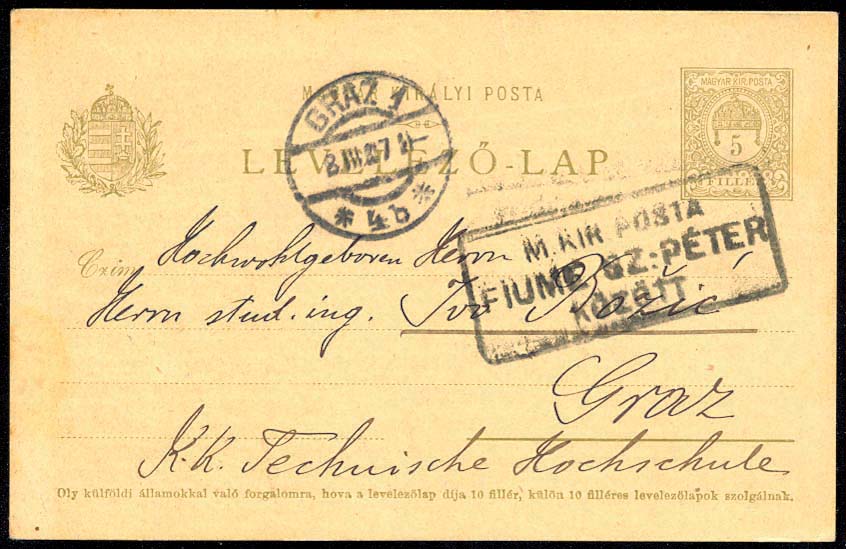 MAGYAR KIRÁLYI POSTA
MAGYAR KIR. POSTA
5
FILLÉR
LEVELEZŐ-LAP
GRAZ 1
* 4b *
M. KIR. POSTA
FIUME SZ: PÉTER
KÖZÖTT
Czim
Hochwohlgeboren Herrn
Herrn stud. ing. Ivo Božić
Graz
K.K. Technische Hochschule
Oly külföldi államokkal való forgalomra, hova a levelezőlap díja 10 fillér, külön 10 filléres levelezőlapok szolgálnak.